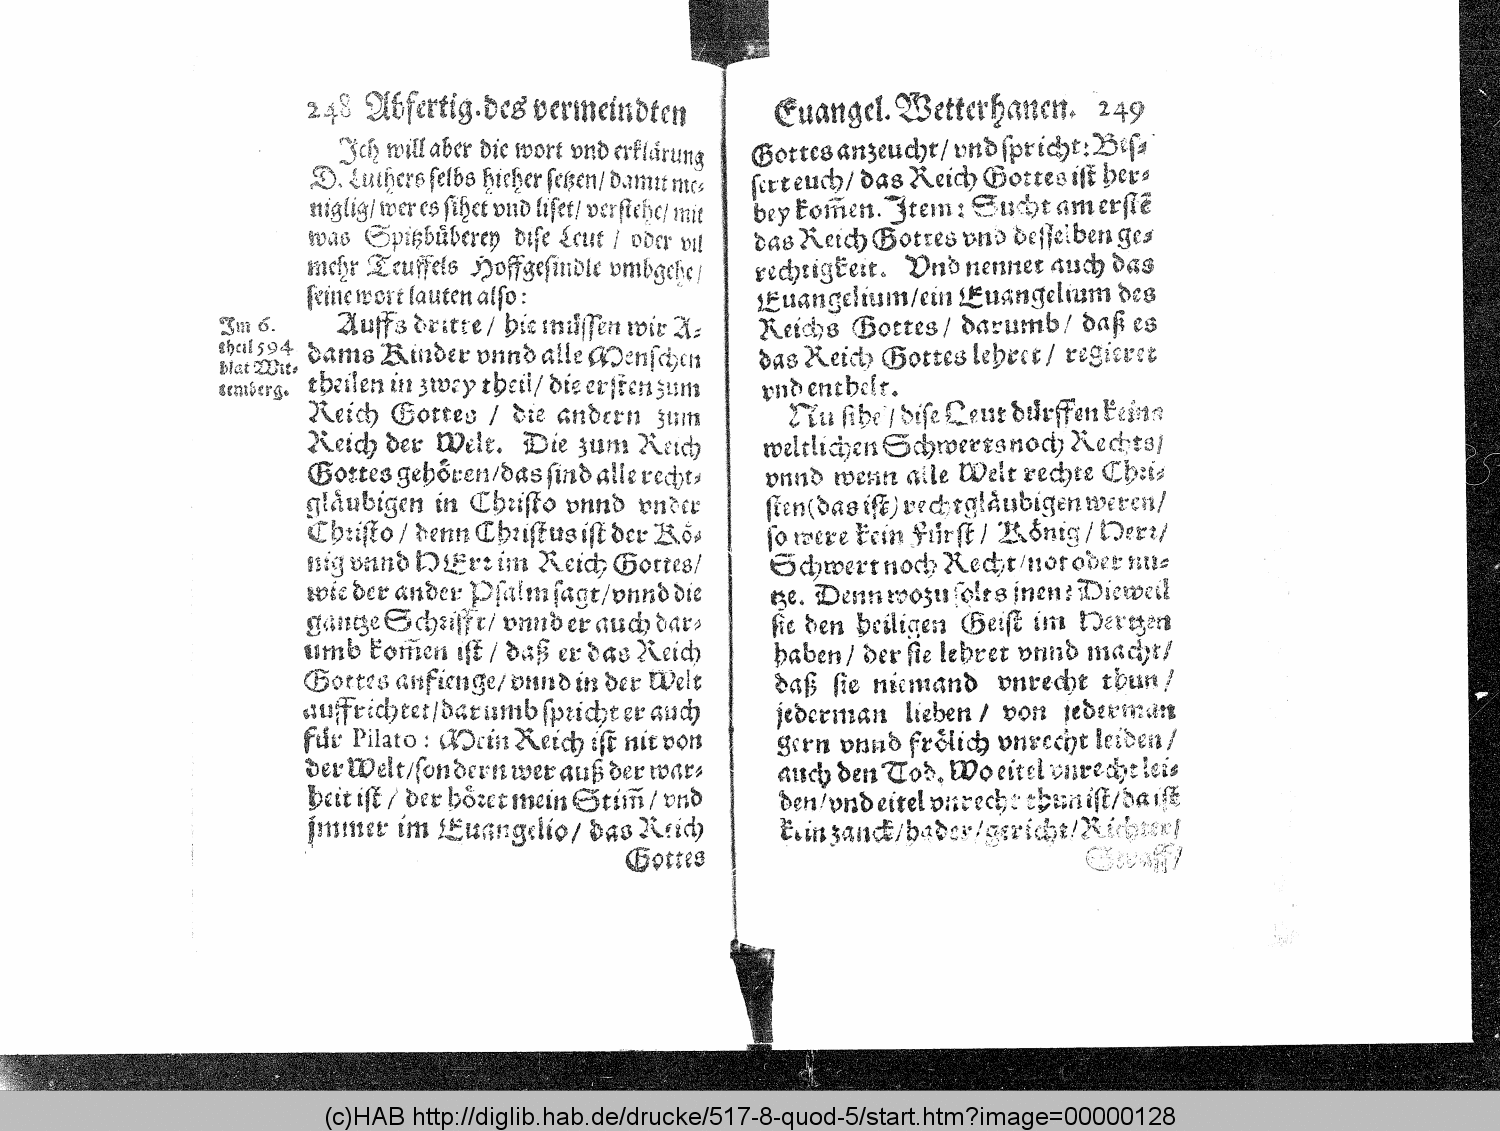 248 Abfertig. des vermeindten
Ich will aber die wort vnd erklärung
D. Luthers selbs hieher setzen/ damit me-
niglig/ wer es sihet vnd liset/ verstehe/ mit
was Spitzbüberey dise Leut / oder vil
mehr Teuffels Hoffgesindle vmbgehe/
seine wort lauten also:
Im 6.
theil 594
blat Wit-
temberg.
Auffs dritte/ hie müssen wir A-
dams Kinder vnnd alle Menschen
theilen in zwey theil/ die ersten zum
Reich Gottes / die andern zum
Reich der Welt. Die zum Reich
Gottes gehören/das sind alle recht-
gläubigen in Christo vnnd vnder
Christo / denn Christus ist der Kö-
nig vnnd HErr im Reich Gottes/
wie der ander Psalm sagt/vnnd die
gantze Schrifft/ vnnd er auch dar-
umb kom̃en ist / daß er das Reich
Gottes anfienge/ vnnd in der Welt
auffrichtet/darumb spricht er auch
für Pilato : Mein Reich ist nit von
der Welt/sondern wer auß der war-
heit ist / der höret mein Stim̃ / vnd
jmmer im Euangelio/ das Reich
Gottes
Euangel. Wetterhanen. 249
Gottes anzeucht/ vnd spricht: Bes-
sert euch/ das Reich Gottes ist her-
bey kom̃en. Item: Sucht am erstẽ
das Reich Gottes vnd desselben ge-
rechtigkeit. Vnd nennet auch das
Euangelium/ein Euangelium des
Reichs Gottes/ darumb/ daß es
das Reich Gottes lehret/ regieret
vnd enthelt.
Nu sihe / dise Leut dürffen keins
weltlichen Schwerts noch Rechts/
vnnd wenn alle Welt rechte Chri-
sten(das ist) rechtgläubigen weren/
so were kein Fürst / König / Herr/
Schwert noch Recht/not oder nu-
tze. Denn wozu solts jnen? Dieweil
sie den heiligen Geist im Hertzen
haben/ der sie lehret vnnd macht/
daß sie niemand vnrecht thun/
jederman lieben / von jederman
gern vnnd frölich vnrecht leiden/
auch den Tod. Wo eitel vnrecht lei-
den/vnd eitel vnrecht thun ist/da ist
kein zanck/hader/gericht/Richter/
(c)HAB http://diglib.hab.de/drucke/517-8-quod-5/start.htm?image=00000128